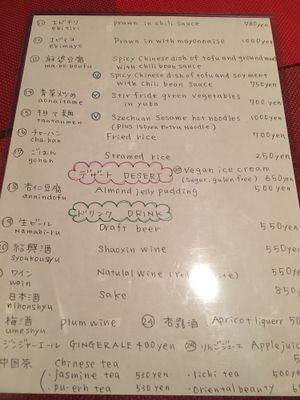 エビチリ prawn in chili sauce 980yen
ebitiri
エビマヨ Prawn in with mayonnaise 1000yen
ebimayo
麻婆豆腐 Spicy Chinese dish of tofu and ground meat
ma-bo-doufu with chili bean sauce
Ⓥ Spicy Chinese dish of tofu and soy meet
with chili bean sauce 750yen
青菜炒め Ⓥ Stir fride green vegetables 700yen
aonaitame in yuba
担々麺 Ⓥ Szechuan Sesame hot noodles 1000yen
tantanmen (PLUS 150yen Extra noodle)
チャーハン Fried rice 700yen
cha-han
ごはん Steamed rice 250yen
gohan
デザート DESERT Vegan ice cream
(Sugar, guten free) 650yen
杏仁豆腐 Almond jelly pudding 500yen
annindofu
ドリンク DRINK
⑲ 生ビール Draft beer 550yen
namabi-ru
⑳ 紹興酒 Shaoxin wine 550yen
syoukousyu
ワイン Natulal wine
wain
日本酒 Sake 850
nihonshyu
梅酒 plum wine ㉔ 杏露酒 Apricot liquerr 50
umeshyu
ジンジャーエール GINGERALE 400yen りんごジュース Apple juice
中国茶 Chinese tea
・Jasmine tea 530yen ・lichi tea 500
・pu-erh tea 530yen ・Oriental beauty